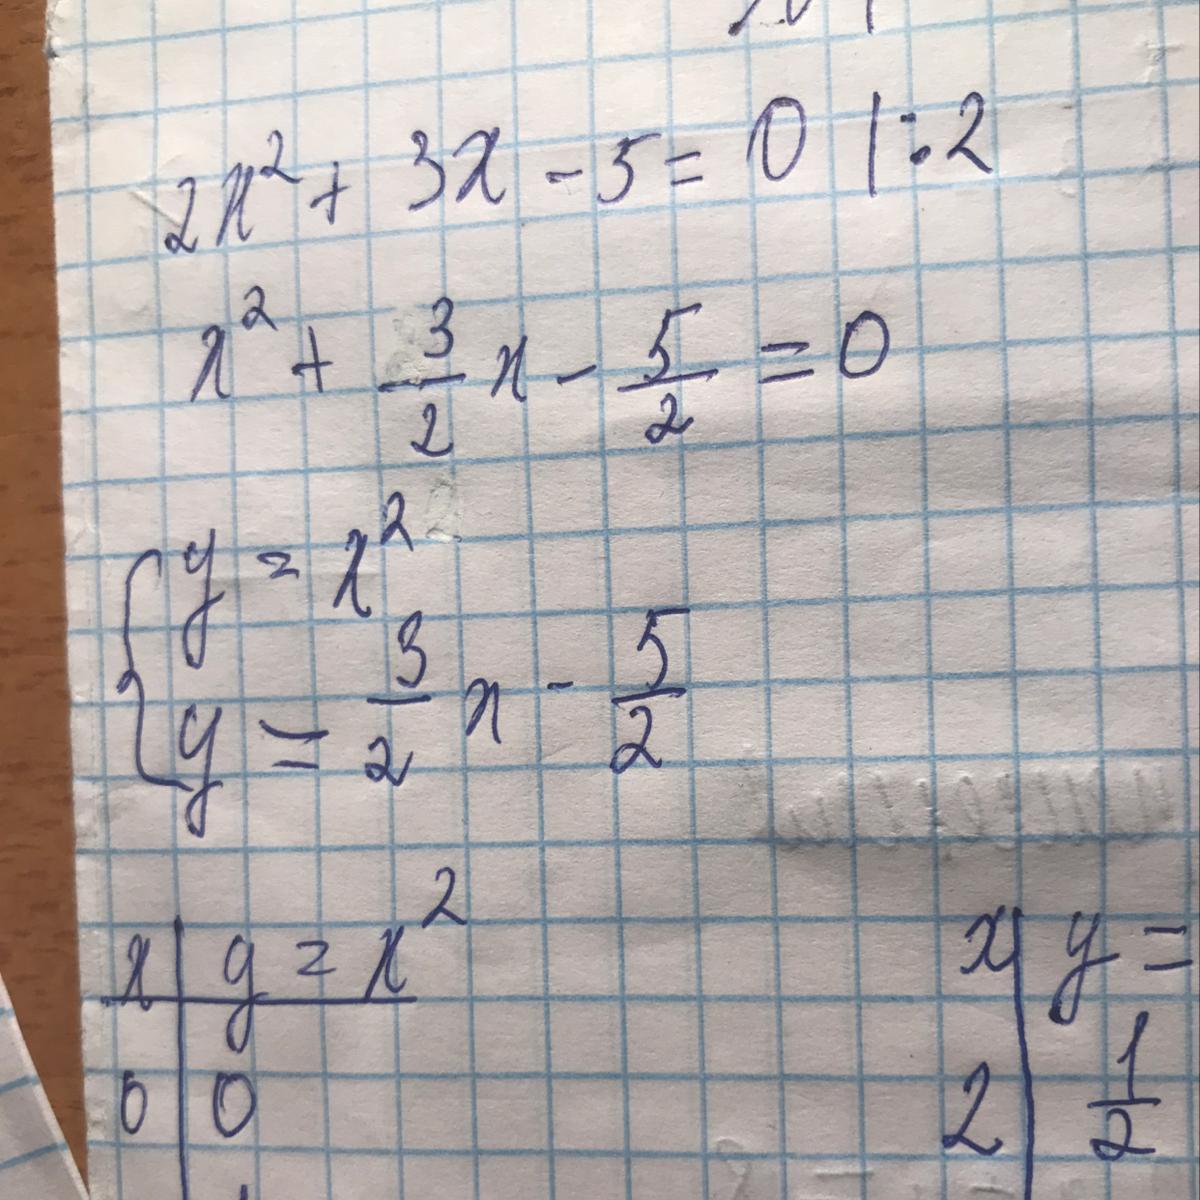 2x² + 3x - 5 = 0 | : 2
x² + 3/2 x - 5/2 = 0
{ y = x²
y = 3/2 x - 5/2
x | y = x²
0 | 0
x | y =
2 | 1/2